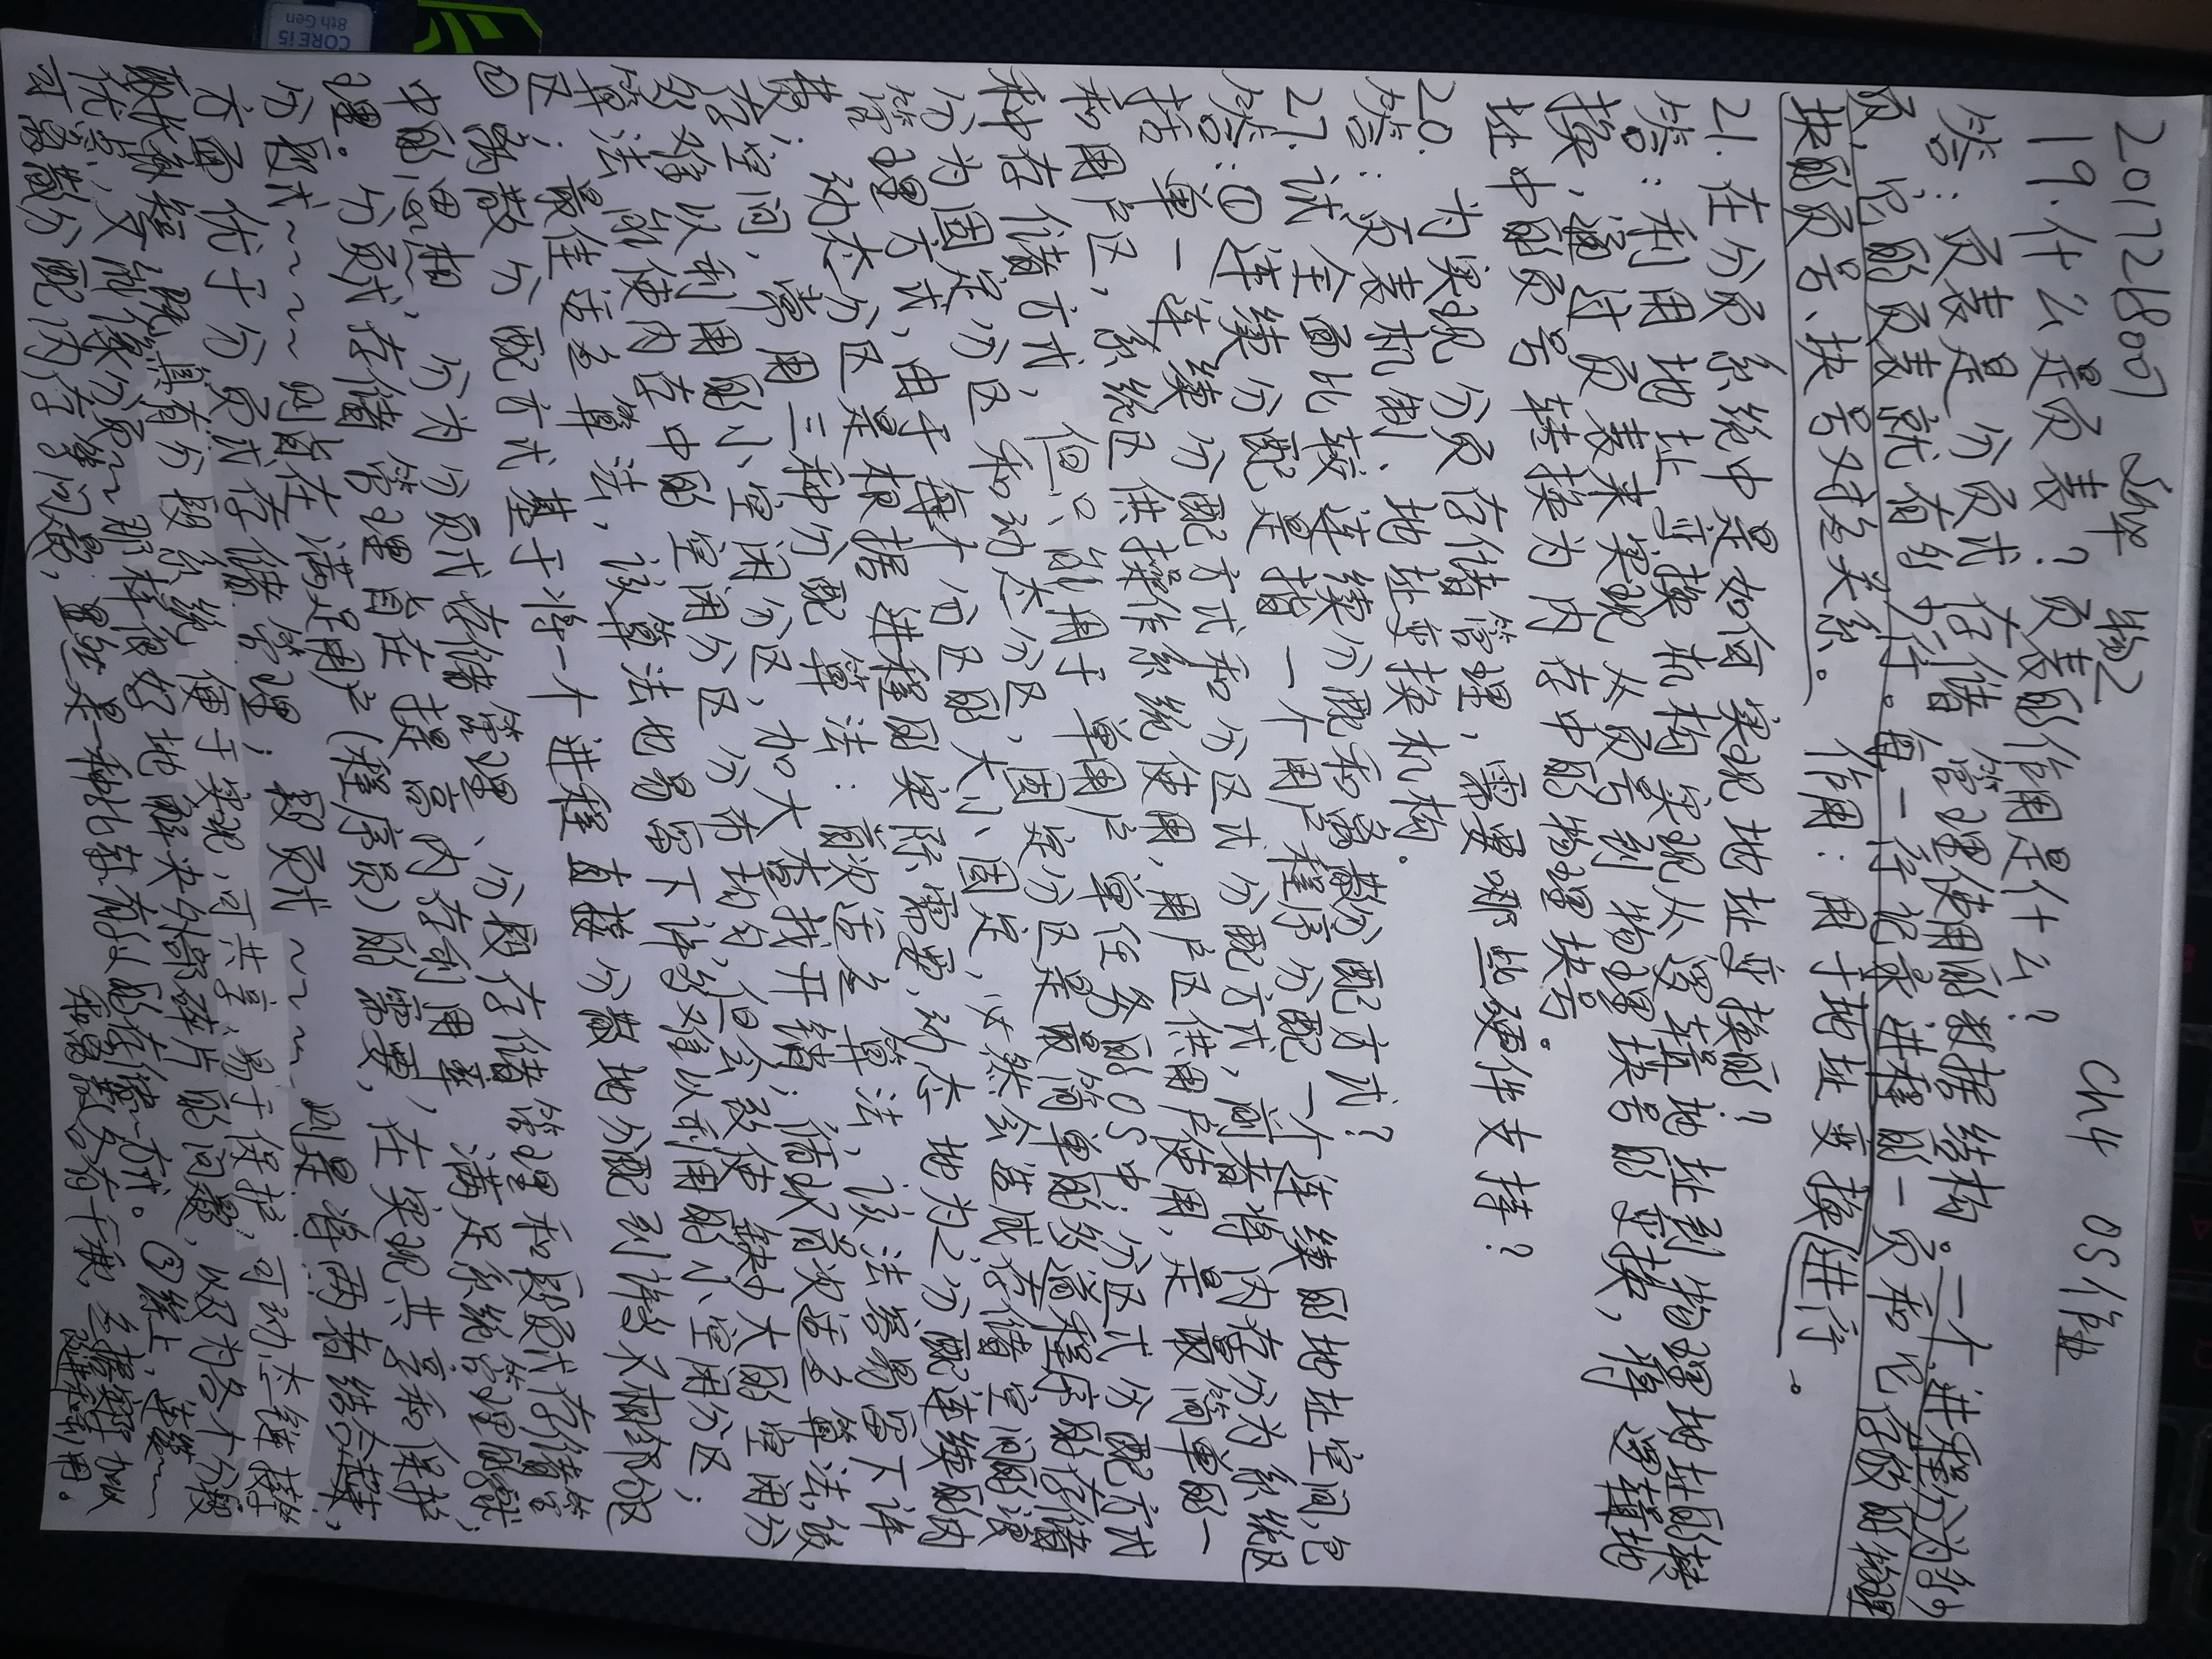 2017218007 物2
Ch4 OS作业
19.什么是页表?页表的作用是什么?
答:页表是分页式存储管理使用的数据结构。一个进程分为多少
页,它的页表就有多少行。每一行记录进程的一页和它存放的物理
块的页号、块号对应关系。作用:用于地址变换进行。
21.在分页系统中是如何实现地址变换的?
答:利用地址变换机构实现从逻辑地址到物理地址的转
换,通过页表来实现从页号到物理块号的变换,将逻辑地
址中的页号转换为内存中的物理块号。
20.为实现分页存储管理,需要哪些硬件支持?
答:页表机制、地址变换机构.
27.试全面比较连续分配和离散分配方式?
答:①连续分配是指一个用户程序分配一个连续的地址空间,包
括单一连续分配方式和分区式分配方式,前者将内存分为系统区
和用户区,系统区供操作系统使用,用户区供用户使用,是最简单的一
种存储方式,但只能用于单用户单任务的OS中;分区式分配方式
分为固定分区和动态分区,固定分区是最简单的多道程序的存储
管理方式,由于每个分区的大小固定,必然会造成存储空间的浪
费;动态分区是根据进程的实际需要,动态地为之分配连续的内
存空间,常用三种分配算法:首次适应算法,该法容易留下许
多难以利用的小空闲分区,加大查找开销;循环首次适应算法,该
算法能使内存中的空闲分区分布均匀,但会致使缺少大的空闲分
区;最佳适应算法,该算法也易留下许多难以利用的小空闲分区;
②离散分配方式基于将一个进程直接分散地分配到许多不相邻分区
中的思想,分为分页式存储管理、分段存储管理和段页式存储管
理。分页式存储管理旨在提高内存利用率,满足系统管理的需求;
分段式~~~~则旨在满足用户(程序员)的需要,在实现共享和保护
方面优于分页式存储管理;段页式~~~则是将两者结合起来,
取长补短,既具有分段系统便于实现,可共享,易于保护,可动态链接等
优点,又能像分页~~那样很好地解决外部碎片的问题,以及为各个分段
可离散分配内存等问题,显然是一种比较有效的存储~方式。③综上,连续~~
和离散各有千秋,应据实际加以
改进和利用。
CORE i5
8th Gen